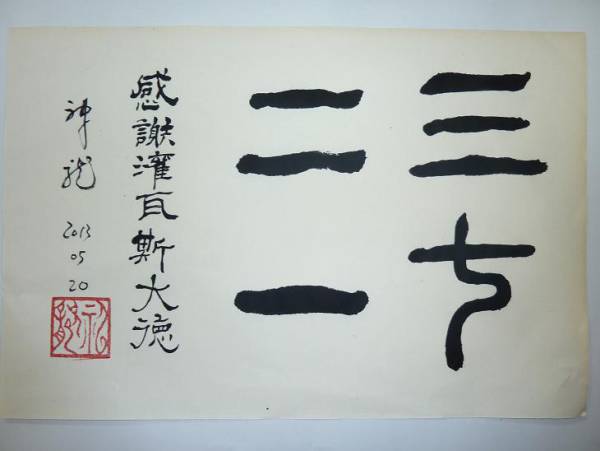 三七
二一
感謝瀍瓦斯大德
神龍
2013
05
20